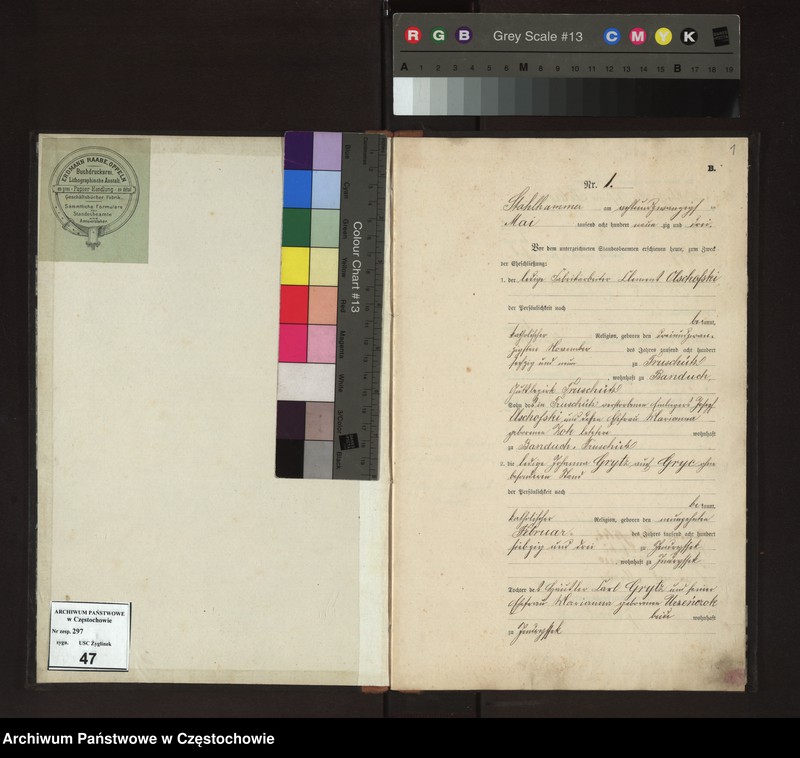 R G B Grey Scale #13 C M Y K
A 1 2 3 4 5 6 M 8 9 10 11 12 13 14 15 B 17 18 19
ERDMANN RAABE, OPPELN
Buchdruckerei.
Lithographische Anstalt
Papier-Handlung
Geschäftsbücher Fabrik.
Sämmtliche Formulare
für
Standesbeamte
Colour Chart #13
Blue
Cyan
Green
Yellow
Red
Magenta
White
3/Color
Black
ARCHIWUM PAŃSTWOWE
w Częstochowie
Nr zesp. 297
sygn. USC Żyglinek
47
1
B.
Nr. 1.
Stahlhammer am
Mai tausend acht hundert neun zig und drei.
Vor dem unterzeichneten Standesbeamten erschienen heute, zum Zweck
der Eheschließung:
1. der ledige Fabrikarbeiter Clement Olschofski
der Persönlichkeit nach
be kannt,
katholischer Religion, geboren den dreiundzwan-
zigsten November des Jahres tausend acht hundert
sechzig und neun zu Truschütz
, wohnhaft zu Banduch,
Gutsbezirk Truschütz
Sohn des in Truschütz verstorbenen Einliegers Josef
Olschofski und dessen Ehefrau Marianna
geborenen Zok letztere wohnhaft
zu Banduch - Truschütz
2. die ledige Johanna Grytz auch Gryc ohne
besonderen Stand
der Persönlichkeit nach
be kannt,
katholischer Religion, geboren den neunzehnten
Februar des Jahres tausend acht hundert
siebzig und drei zu Jendryssek
, wohnhaft zu Jendryssek
Tochter des Häusler Carl Grytz und seiner
Ehefrau Marianna geborenen
beide wohnhaft
zu Jendryssek
Archiwum Państwowe w Częstochowie